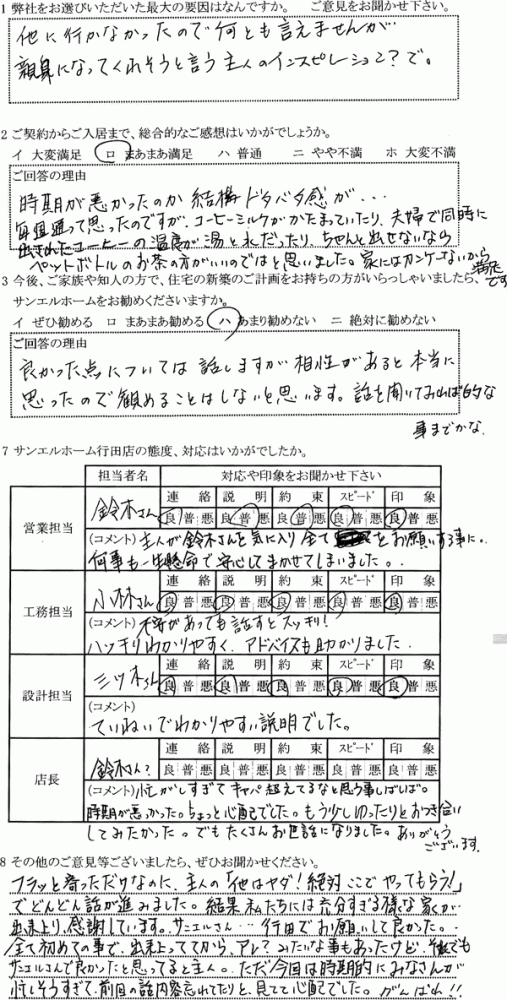 1 弊社をお選びいただいた最大の要因はなんですか。 ご意見をお聞かせ下さい。
他に行かなかったので何とも言えませんが
親身になってくれそうと言う主人のインスピレーション?で。
2 ご契約からご入居まで、総合的なご感想はいかがでしょうか。
イ 大変満足 ロ まあまあ満足 ハ 普通 ニ やや不満 ホ 大変不満
ご回答の理由
時期が悪かったのか結構ドタバタ感が...
毎週通って思ったのですが、コーヒーミルクがかたまっていたり、夫婦で同時に
出されたコーヒーの温度が湯と水だったり、ちゃんと出せないなら
ペットボトルのお茶の方がいいのではと思いました。家にはカンケーないから満足です
3 今後、ご家族や知人の方で、住宅の新築のご計画をお持ちの方がいらっしゃいましたら、
サンエルホームをお勧めくださいますか。
イ ぜひ勧める ロ まあまあ勧める ハ あまり勧めない ニ 絶対に勧めない
ご回答の理由
良かった点については話しますが相性があると本当に
思ったので勧めることはしないと思います。話を聞いてみれば的な
事までかな.
7 サンエルホーム行田店の態度、対応はいかがでしたか。
担当者名 対応や印象をお聞かせ下さい
営業担当 鈴木さん 連絡 説明 約束 スピード 印象
良普悪 良普悪 良普悪 良普悪 良普悪
(コメント) 主人が鈴木さんを気に入り全てをお願いする事に..
何事も一生懸命で安心してまかせてしまいました。.
工務担当 小林さん 連絡 説明 約束 スピード 印象
良普悪 良普悪 良普悪 良普悪 良普悪
(コメント) 不安があっても話すとスッキリ!
ハッキリわかりやすく、アドバイスも助かりました.
設計担当 三ツ木さん 連絡 説明 約束 スピード 印象
良普悪 良普悪 良普悪 良普悪 良普悪
(コメント)
ていねいでわかりやすい説明でした。
店長 鈴木さん? 連絡 説明 約束 スピード 印象
良普悪 良普悪 良普悪 良普悪 良普悪
(コメント) 忙がしすぎてキャパ超えてるなと思う事しばしば。
時期が悪かった。ちょっと心配でした。もう少しゆったりとおつき合い
してみたかった。でもたくさんお世話になりました。ありがとうございます.
8 その他のご意見等ございましたら、ぜひお聞かせください。
フラッと寄っただけなのに、主人の「他はヤダ!絶対ここでやってもらう!」
でどんどん話が進みました。結果私たちには充分すぎる様な家が
出来上り、感謝しています。サンエルさん...行田でお願いして良かった..
全て初めての事で、出来上ってから、アレ?みたいな事もあったけど、それでも
サンエルさんで良かったと思ってると主人。ただ今回は時期的にみなさんが
忙しそうすぎて、前回の話内容忘れてたりと、見てて心配でした。がんばれ!!